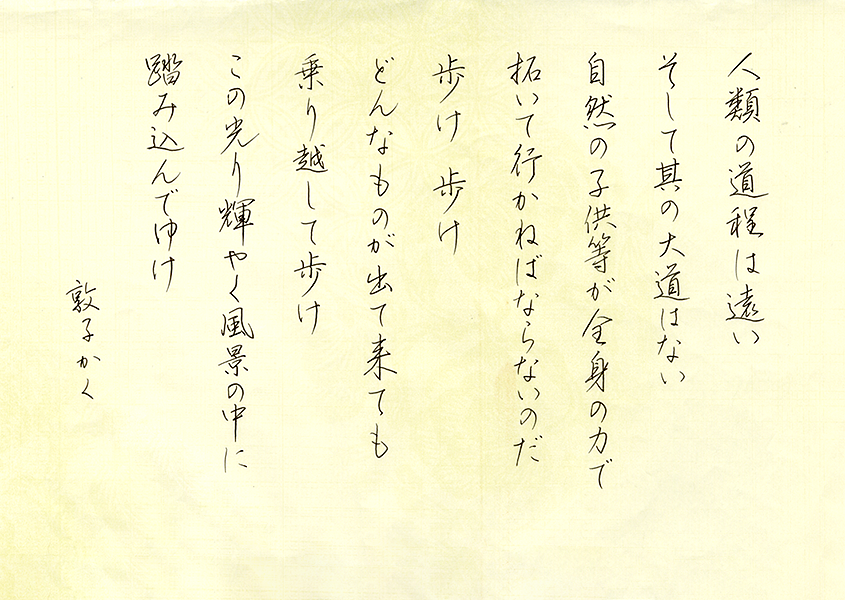 人類の道程は遠い
そして其の大道はない
自然の子供等が全身の力で
拓いて行かねばならないのだ
歩け 歩け
どんなものが出て来ても
乗り越して歩け
この光り輝やく風景の中に
踏み込んでゆけ
敦子かく